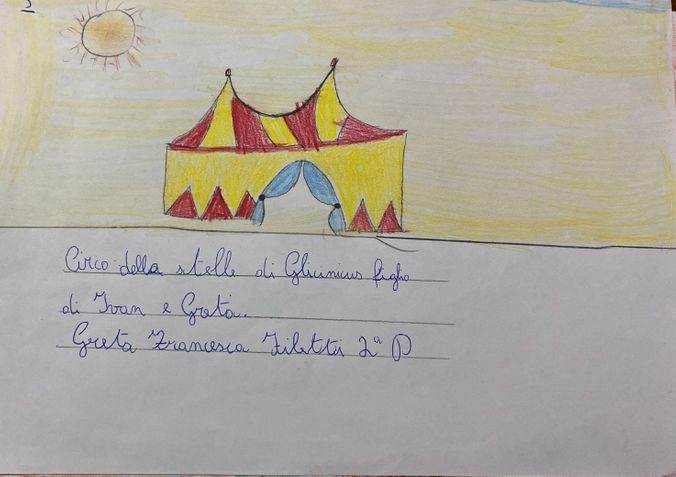 Circo della stelle di Glicinius figlio
di Ivan e Greta.
Greta Francesca Filetti 2ª D